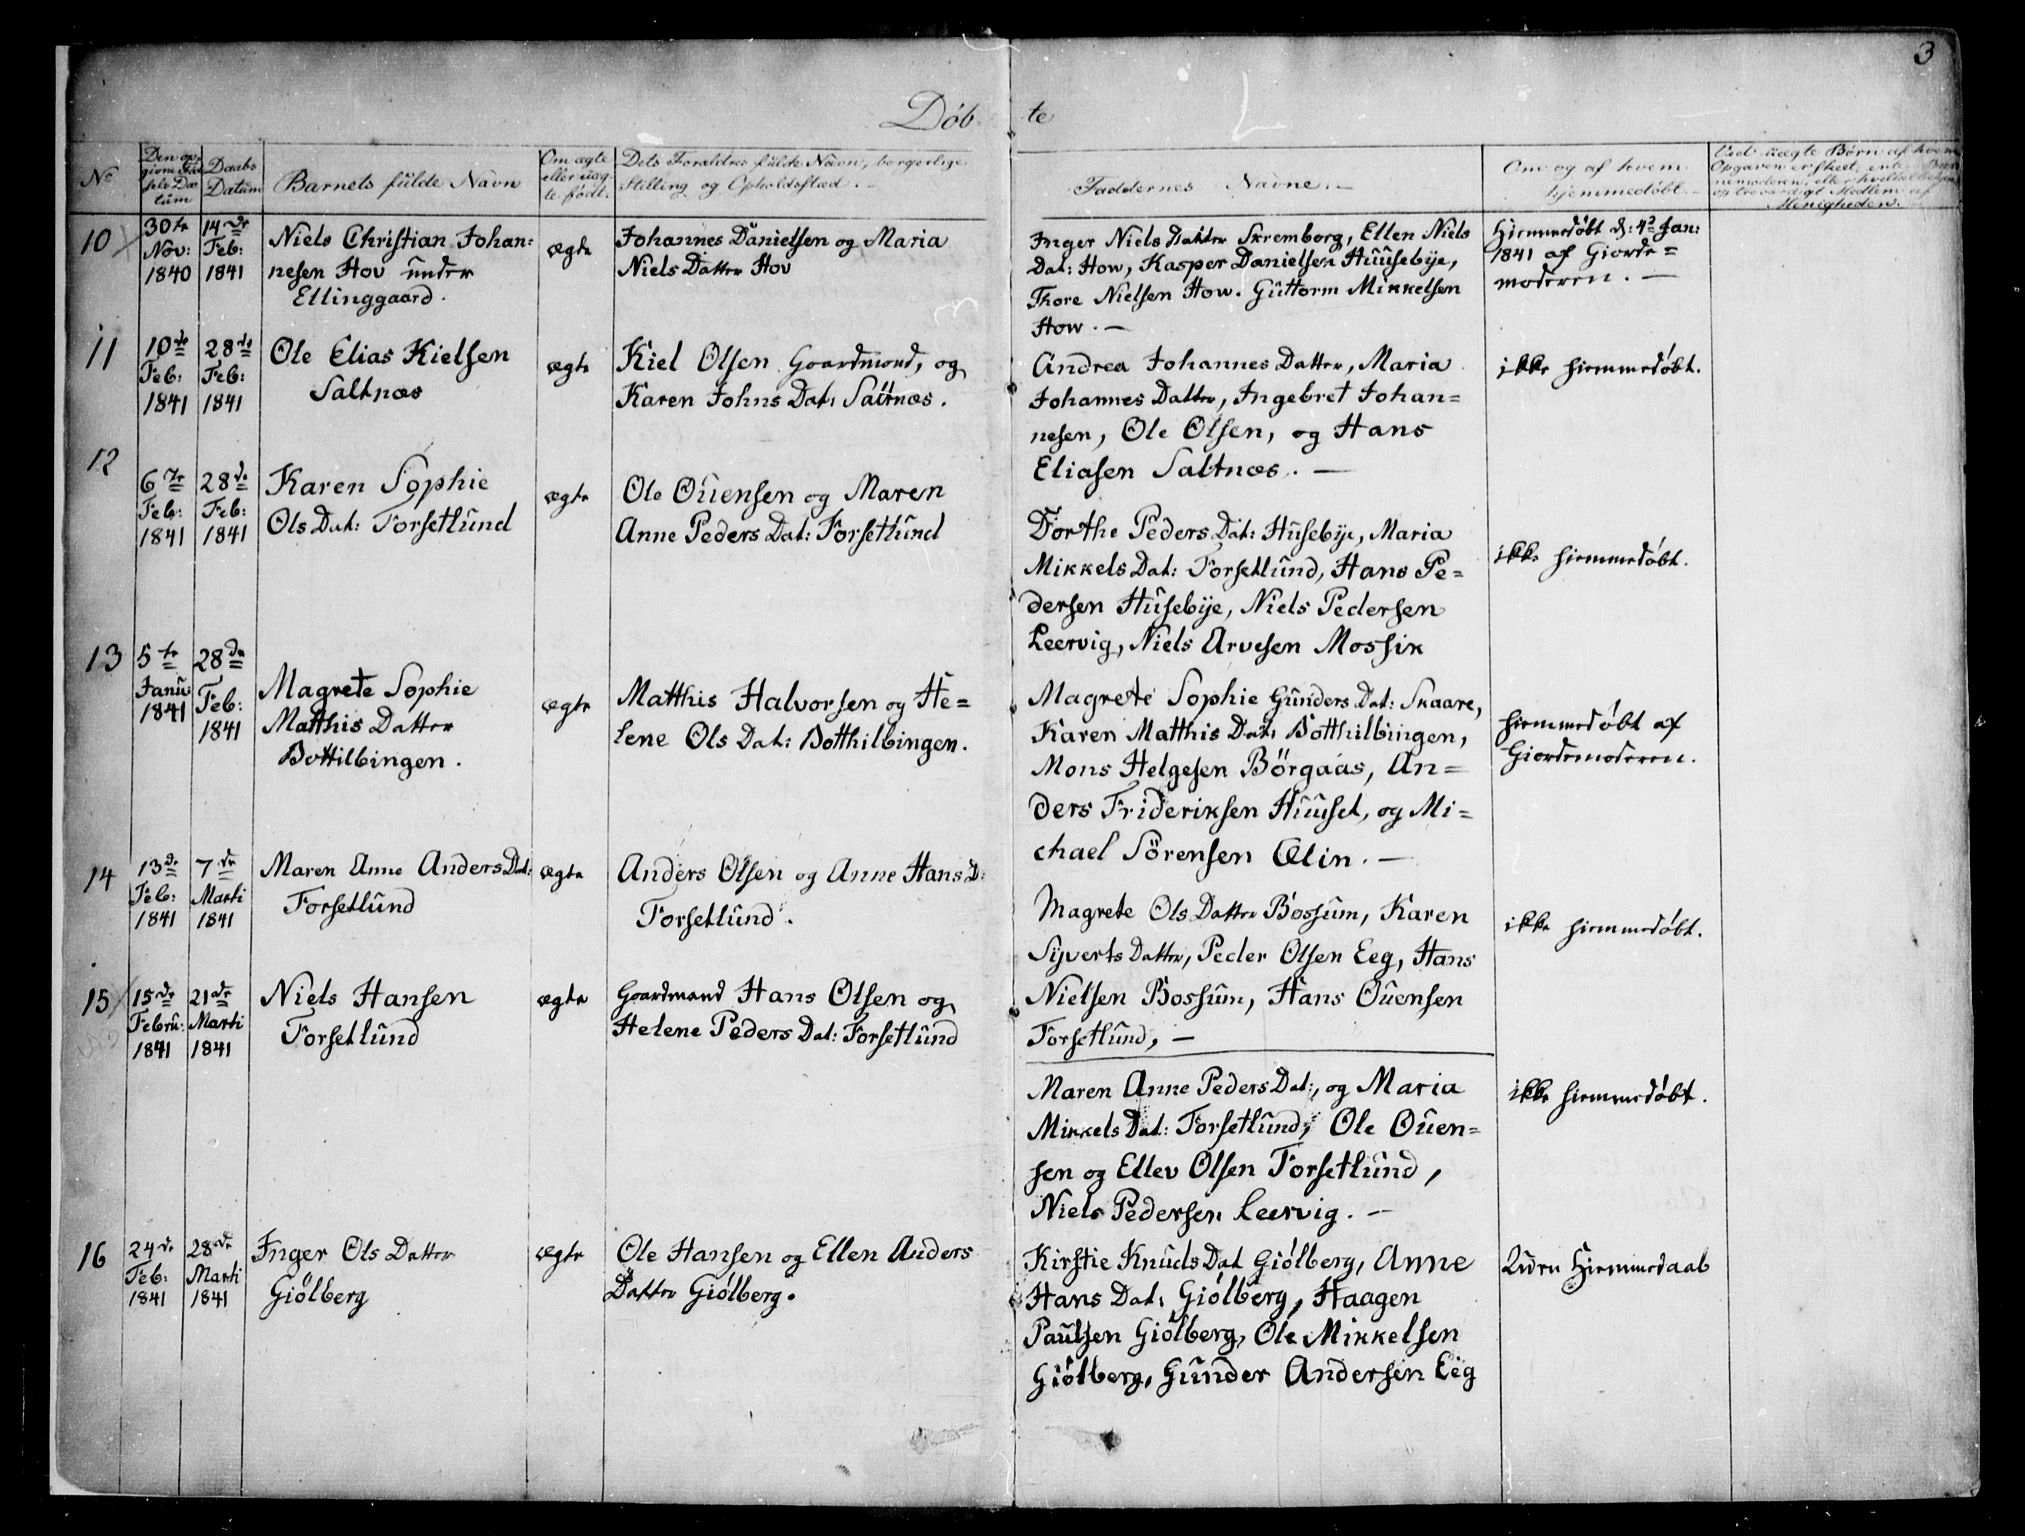 3
Döbte
No
Den opgivne Fødsels Datum
Daabs Datum
Barnets fulde Navn
Om ægte eller uægte født.
Dets Forældres fulde Navn, borgerlige Stilling og Opholdsstæd.
Faddernes Navne.
Om og af hvem hjemmedøbt.
Ved uægte Børn af hvem Opgaven er skeet, enten Barnemoderen, eller hvilket
og troværdigt Medlem af Menigheden.
10
30te
Nov:
1840
14de
Feb:
1841
Niels Christian Johan:
nesen Hov under
Ellinggaard.
ægte
Johannes Danielsen og Maria
Niels Datter Hov
Inger Niels Datter Skremborg, Ellen Niels
Dat: How, Kasper Danielsen Huusebije,
Thore Nielsen How. Guttorm Mikkelsen
How. —
Hiemmedøbt d: 4de Jan:
1841 af Giorde=
moderen. —
11
10de
Feb:
1841
28de
Feb:
1841
Ole Elias Kielsen
Saltnæs
ægte
Kiel Olsen Goardmond, og
Karen Johns Dat: Saltnæs.
Andrea Johannes Datter, Maria
Johannes Datter, Ingebret Johan=
nesen, Ole Olsen, og Hans
Eliasen Saltnæs. —
ikke hiemmedøbt.
12
6te
Feb:
1841
28de
Feb:
1841
Karen Sophie
Ols Dat: Forsetlund
ægte
Ole Ouensen og Maren
Anne Peders Dat: Forsetlund
Dorthe Peders Dat: Husebije, Maria
Mikkels Dat: Forsetlund, Hans Pe=
dersen Husebije, Niels Pedersen
Leervig, Niels Arvesen Mossik
ikke hiemmedøbt.
13
5te
Janu
1841
28de
Feb:
1841
Magrete Sophie
Matthis Datter
Bottilbingen.
ægte
Matthis Halvorsen og He=
lene Ols Dat: Botthilbingen.
Magrete Sophie Gunders Dat: Skaare,
Karen Matthis Dat: Botthilbingen,
Mons Helgesen Börgaas, An=
ders Frideriksen Huuset, og Mi=
chael Sörensen Ælin. —
hiemmedøbt af
Giordemoderen.
14
13de
Feb:
1841
7de
Marti
1841
Maren Anne Anders Dat:
Forsetlund
ægte
Anders Olsen og Anne Hans D:
Forsetlund.
Magrete Ols Datter Bossum, Karen
Sijverts Datter, Peder Olsen Eeg, Hans
Nielsen Bossum, Hans Ouensen
Forsetlund, —
ikke hiemmedøbt.
15
15de
Febru:
1841
21de
Marti
1841
Niels Hansen
Forsetlund
ægte
Goardmand Hans Olsen og
Helene Peders Dat: Forsetlund
Maren Anne Peders Dat:, og Maria
Mikkels Dat: Forsetlund, Ole Ouen=
sen og Ellev Olsen Forsetlund,
Niels Pedersen Leervig. —
ikke hiemmedøbt.
16
24de
Feb:
1841
28de
Marti
1841
Inger Ols Datter
Giölberg
ægte
Ole Hansen og Ellen Anders
Datter Giölberg.
Kirstie Knuds Dat Giölberg, Anne
Hans Dat: Giölberg, Haagen
Paulsen Giölberg, Ole Mikkelsen
Giölberg, Gunder Andersen Eeg
Uden Hiemmedaab